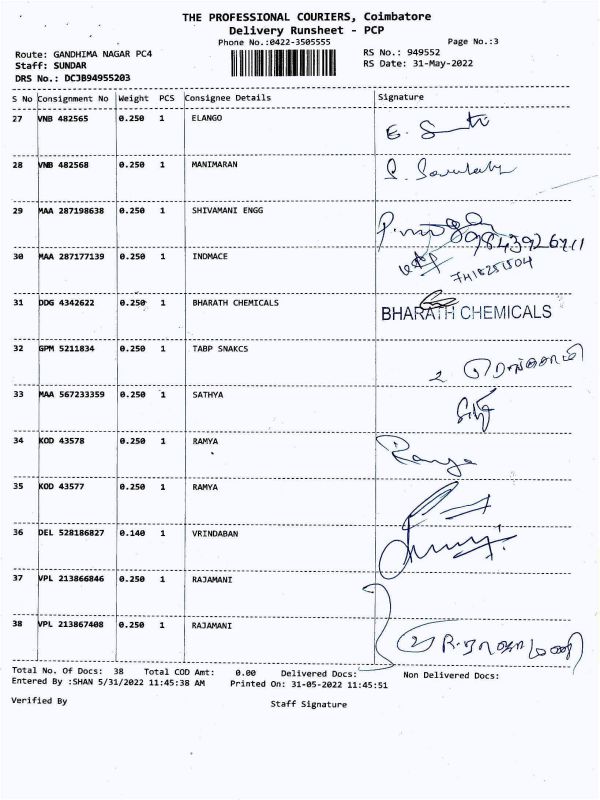 THE PROFESSIONAL COURIERS, Coimbatore
Delivery Runsheet - PCP
Phone No.:0422-3505555
Page No.:3
Route: GANDHIMA NAGAR PC4
RS No.: 949552
Staff: SUNDAR
RS Date: 31-May-2022
DRS No.: DCJB94955203
S No Consignment No Weight PCS Consignee Details Signature
27 VNB 482565 0.250 1 ELANGO
28 VNB 482568 0.250 1 MANIMARAN
29 MAA 287198638 0.250 1 SHIVAMANI ENGG
30 MAA 287177139 0.250 1 INDMACE
31 DDG 4342622 0.250 1 BHARATH CHEMICALS BHARATH CHEMICALS
32 GPM 5211834 0.250 1 TABP SNAKCS
33 MAA 567233359 0.250 1 SATHYA
34 KOD 43578 0.250 1 RAMYA Ramya
35 KOD 43577 0.250 1 RAMYA
36 DEL 528186827 0.140 1 VRINDABAN
37 VPL 213866846 0.250 1 RAJAMANI
38 VPL 213867408 0.250 1 RAJAMANI
Total No. Of Docs: 38 Total COD Amt: 0.00 Delivered Docs: Non Delivered Docs:
Entered By :SHAN 5/31/2022 11:45:38 AM Printed On: 31-05-2022 11:45:51
Verified By Staff Signature